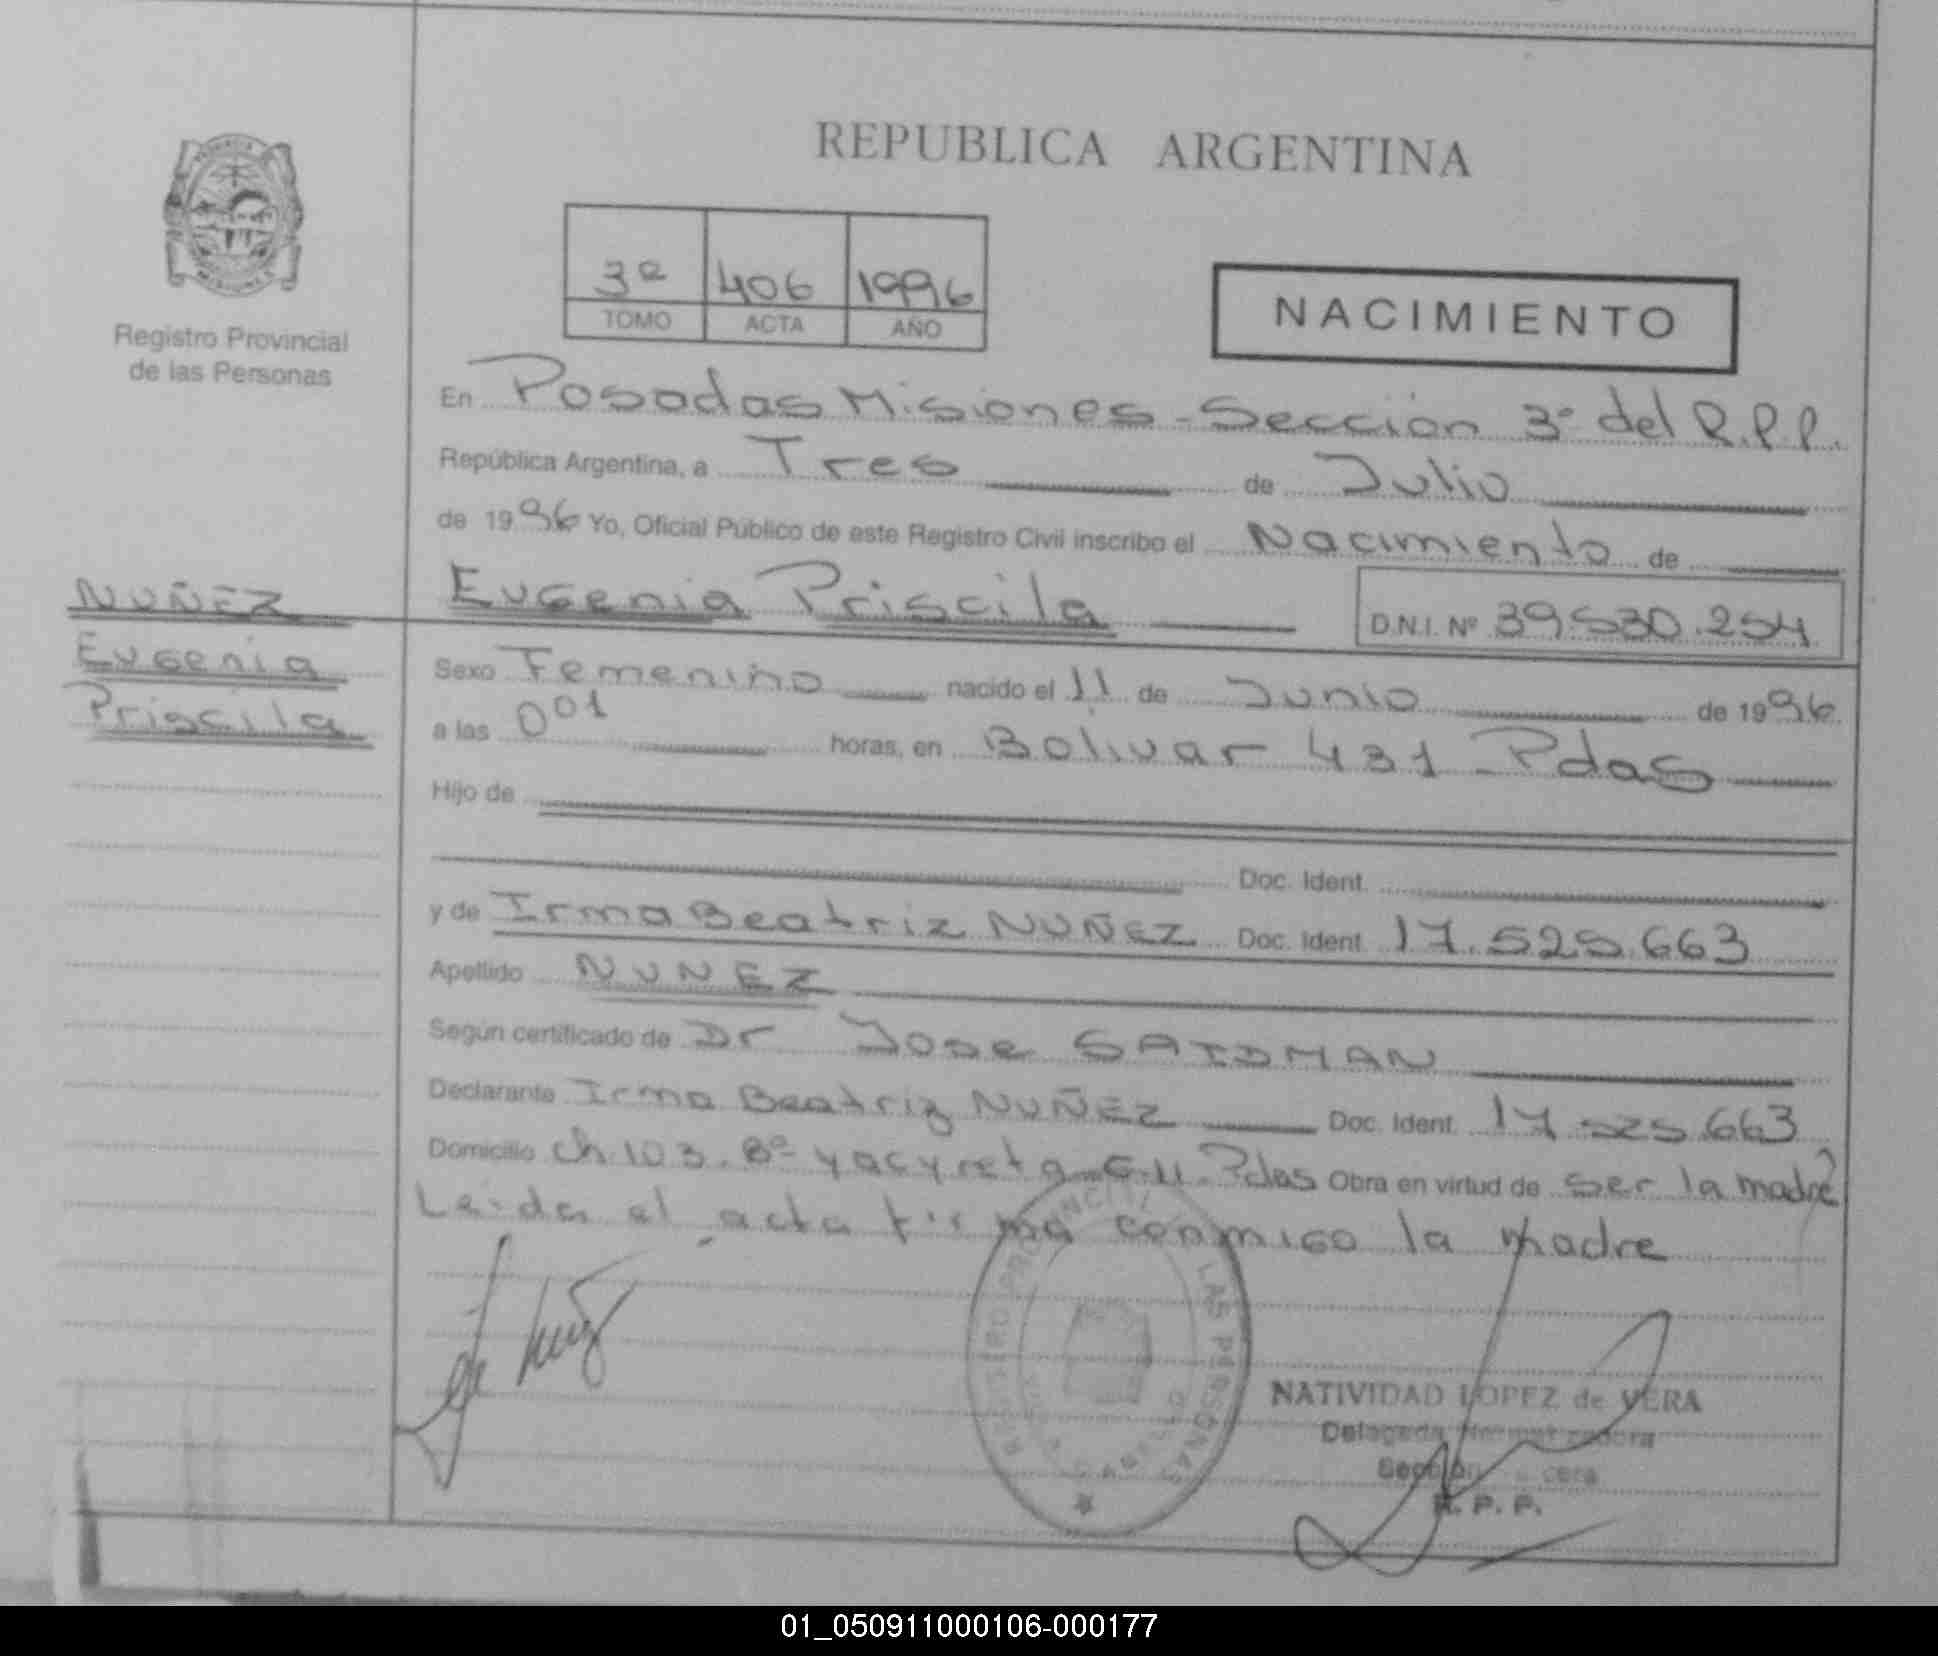 REPUBLICA ARGENTINA
3ª 406 1996
TOMO ACTA AÑO
NACIMIENTO
Registro Provincial
de las Personas
En Posadas Misiones - Sección 3ª del R.P.P.
República Argentina, a Tres de Julio
de 1996 Yo, Oficial Público de este Registro Civil inscribo el Nacimiento de
NUÑEZ
Eugenia
Priscila
Eugenia Priscila D.N.I. Nº 39.530.254
Sexo Femenino nacido el 11 de Junio de 1996
a las 0 01 horas, en Bolivar 431 - Pdas
Hijo de
Doc. Ident.
y de Irma Beatriz NUÑEZ Doc. Ident. 17.525.663
Apellido NUÑEZ
Según certificado de Dr Jose SAIDMAN
Declarante Irma Beatriz NUÑEZ Doc. Ident. 17.525.663
Domicilio ch 103. Bº yacyreta Pdas Obra en virtud de ser la madre
Leida el acta firma conmigo la madre
REGISTRO PROVINCIAL LAS PERSONAS
NATIVIDAD LOPEZ de VERA
Delegada
Sección
R. P. P.
01_050911000106-000177